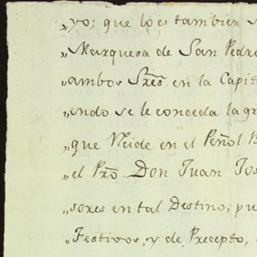 „yo; que lo es tambien
„Marquesa de San Pedr
„ambos Sres en la Capi
„endo se le conceda la gr
„que Reside en el Peñol
„el Pro Don Juan Jos
„sores en tal Destino; pu
„Festivos, y de Precepto,